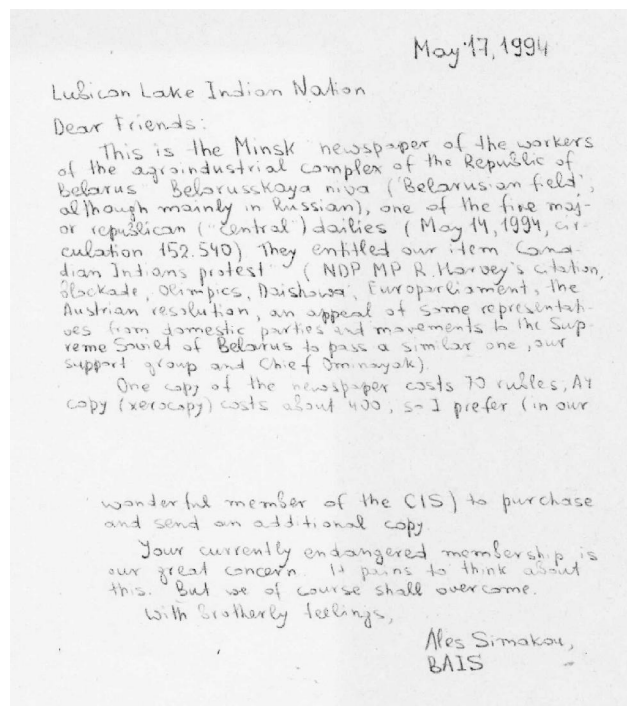 May 17, 1994
Lubicon Lake Indian Nation
Dear Friends:
This is the Minsk newspaper of the workers
of the agroindustrial complex of the Republic of
Belarus "Belorusskaya niva" ("Belarusian field",
although mainly in Russian), one of the five maj-
or republican ("central") dailies (May 14, 1994, cir-
culation 152.540) They entitled our item "Cana-
dian Indians protest" (NDP MP R. Harvey's citation,
blockade, Olimpics, Daishowa, Europarliament, the
Austrian resolution, an appeal of some representati-
ves from domestic parties and movements to the Sup-
reme Soviet of Belarus to pass a similar one, our
support group and Chief Ominayak).
One copy of the newspaper costs 70 rubles, A4
copy (xerocopy) costs about 400, so I prefer (in our
wonderful member of the CIS) to purchase
and send an additional copy.
Your currently endangered membership is
our great concern. It pains to think about
this. But we of course shall overcome.
With brotherly feelings,
Ales Simakou,
BAIS